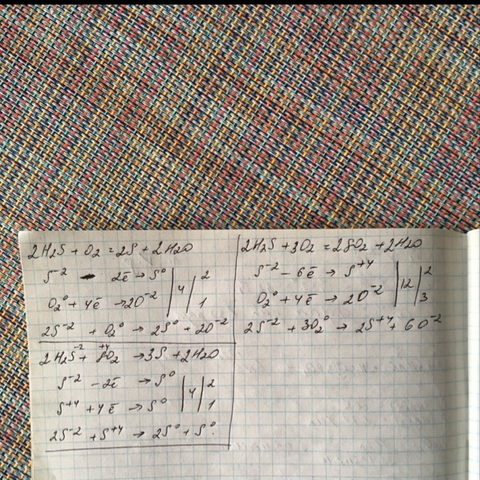 2H₂S + O₂ = 2S + 2H₂O
S⁻² - 2ē → S⁰ | 4 | 2
O₂⁰ + 4ē → 2O⁻² | 1
2S⁻² + O₂⁰ → 2S⁰ + 2O⁻²
2H₂S⁻² + S⁺⁴O₂ → 3S + 2H₂O
S⁻² - 2ē → S⁰ | 4 | 2
S⁺⁴ + 4ē → S⁰ | 1
2S⁻² + S⁺⁴ → 2S⁰ + S⁰.
2H₂S + 3O₂ = 2SO₂ + 2H₂O
S⁻² - 6ē → S⁺⁴ | 12 | 2
O₂⁰ + 4ē → 2O⁻² | 3
2S⁻² + 3O₂⁰ → 2S⁺⁴ + 6O⁻²